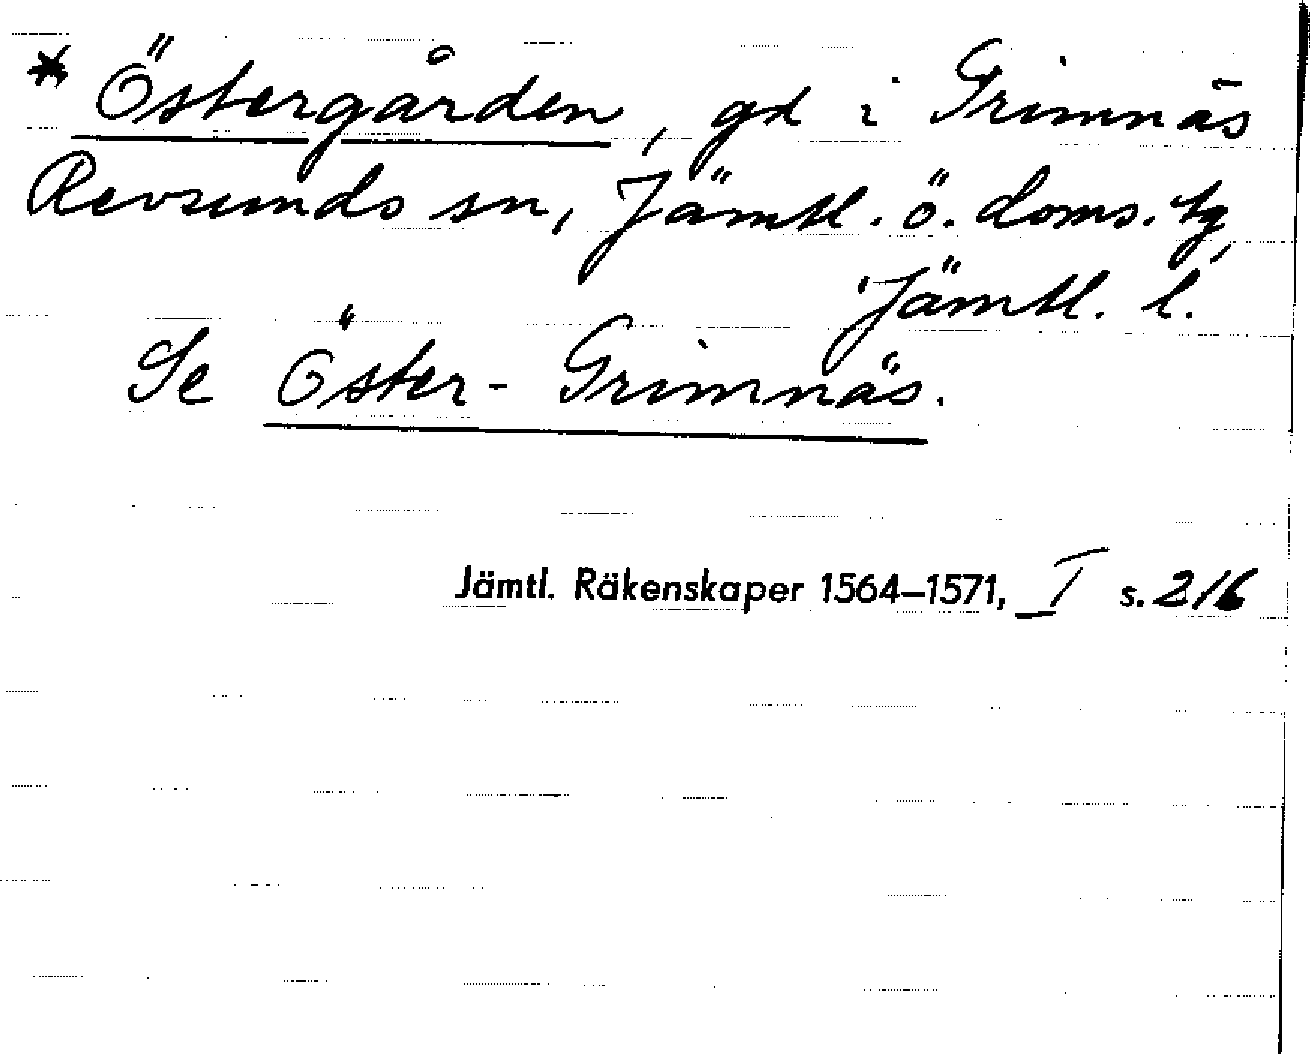 * Östergården, gd i Grimnäs
Revsunds sn, Jämtl. ö. doms. tg,
Jämtl. l.
Se Öster-Grimnäs.
Jämtl. Räkenskaper 1564–1571, I s. 216